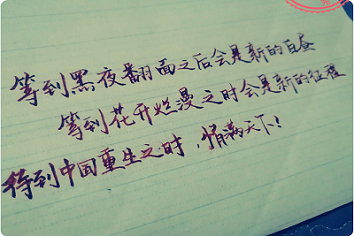 等到黑夜翻面之后会是新的白昼
等到花开烂漫之时会是新的征程
待到中国重生之时，情满天下！